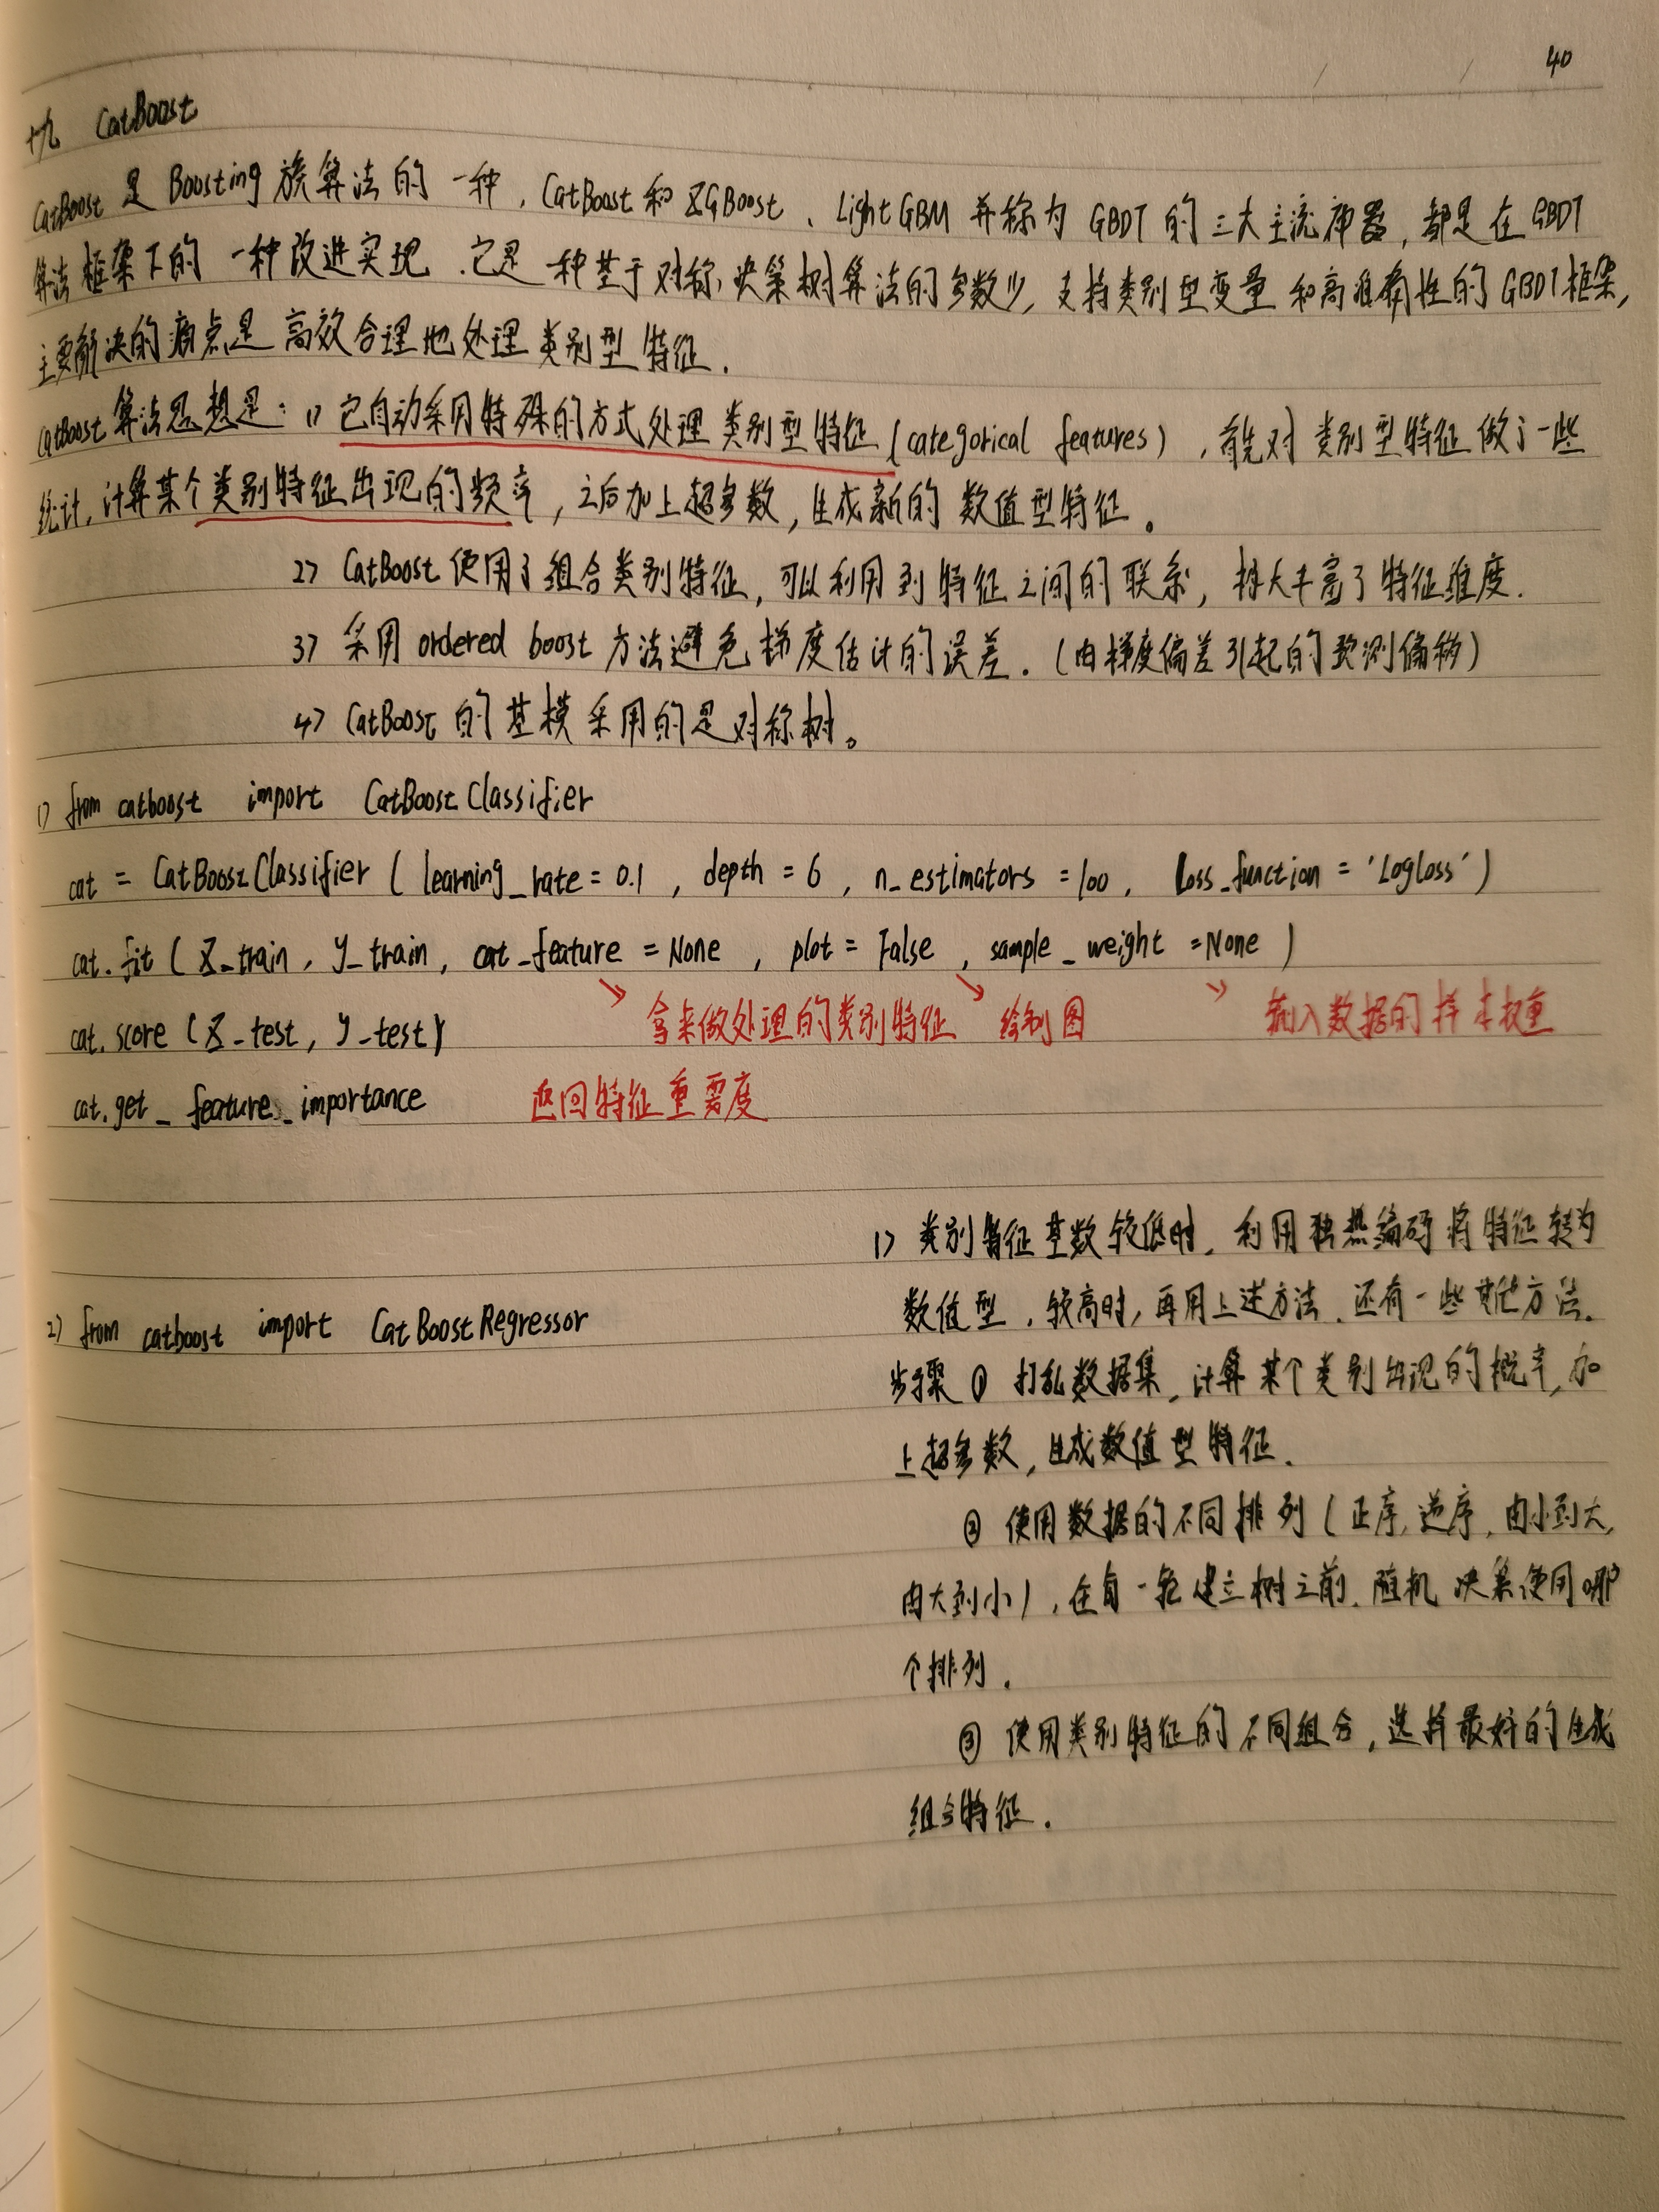 40
十九 CatBoost
CatBoost 是 Boosting 族算法的一种，CatBoost 和 XGBoost、LightGBM 并称为 GBDT 的三大主流神器，都是在 GBDT
算法框架下的一种改进实现．它是一种基于对称决策树算法的参数少，支持类别型变量和高准确性的 GBDT 框架，
主要解决的痛点是高效合理地处理类别型特征．
CatBoost 算法思想是：1) 它自动采用特殊的方式处理类别型特征 (categorical features)，首先对类别型特征做了一些
统计，计算某个类别特征出现的频率，之后加上超参数，生成新的数值型特征。
2) CatBoost 使用了组合类别特征，可以利用到特征之间的联系，极大丰富了特征维度．
3) 采用 ordered boost 方法避免梯度估计的误差．(由梯度偏差引起的预测偏移)
4) CatBoost 的基模采用的是对称树。
1) from catboost import CatBoostClassifier
cat = CatBoostClassifier ( learning_rate = 0.1 , depth = 6 , n_estimators = 100 , loss_function = 'Logloss' )
cat.fit ( X_train , y_train , cat_feature = None , plot = False , sample_weight = None )
拿来做处理的类别特征 绘制图 输入数据的样本权重
cat.score ( X_test , y_test )
cat.get_feature_importance 返回特征重要度
1) 类别特征基数较低时，利用独热编码将特征转为
数值型，较高时，再用上述方法．还有一些其他方法．
2) from catboost import CatBoostRegressor
步骤 ① 打乱数据集，计算某个类别出现的概率，加
上超参数，生成数值型特征．
② 使用数据的不同排列 (正序，逆序，由小到大，
由大到小)，在每一轮建立树之前，随机决策使用哪
个排列．
③ 使用类别特征的不同组合，选择最好的生成
组合特征．